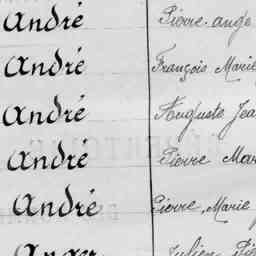 André Pierre ange
André François Marie
André Auguste Jea
André Pierre Mar
André Pierre Marie
Anger Julien